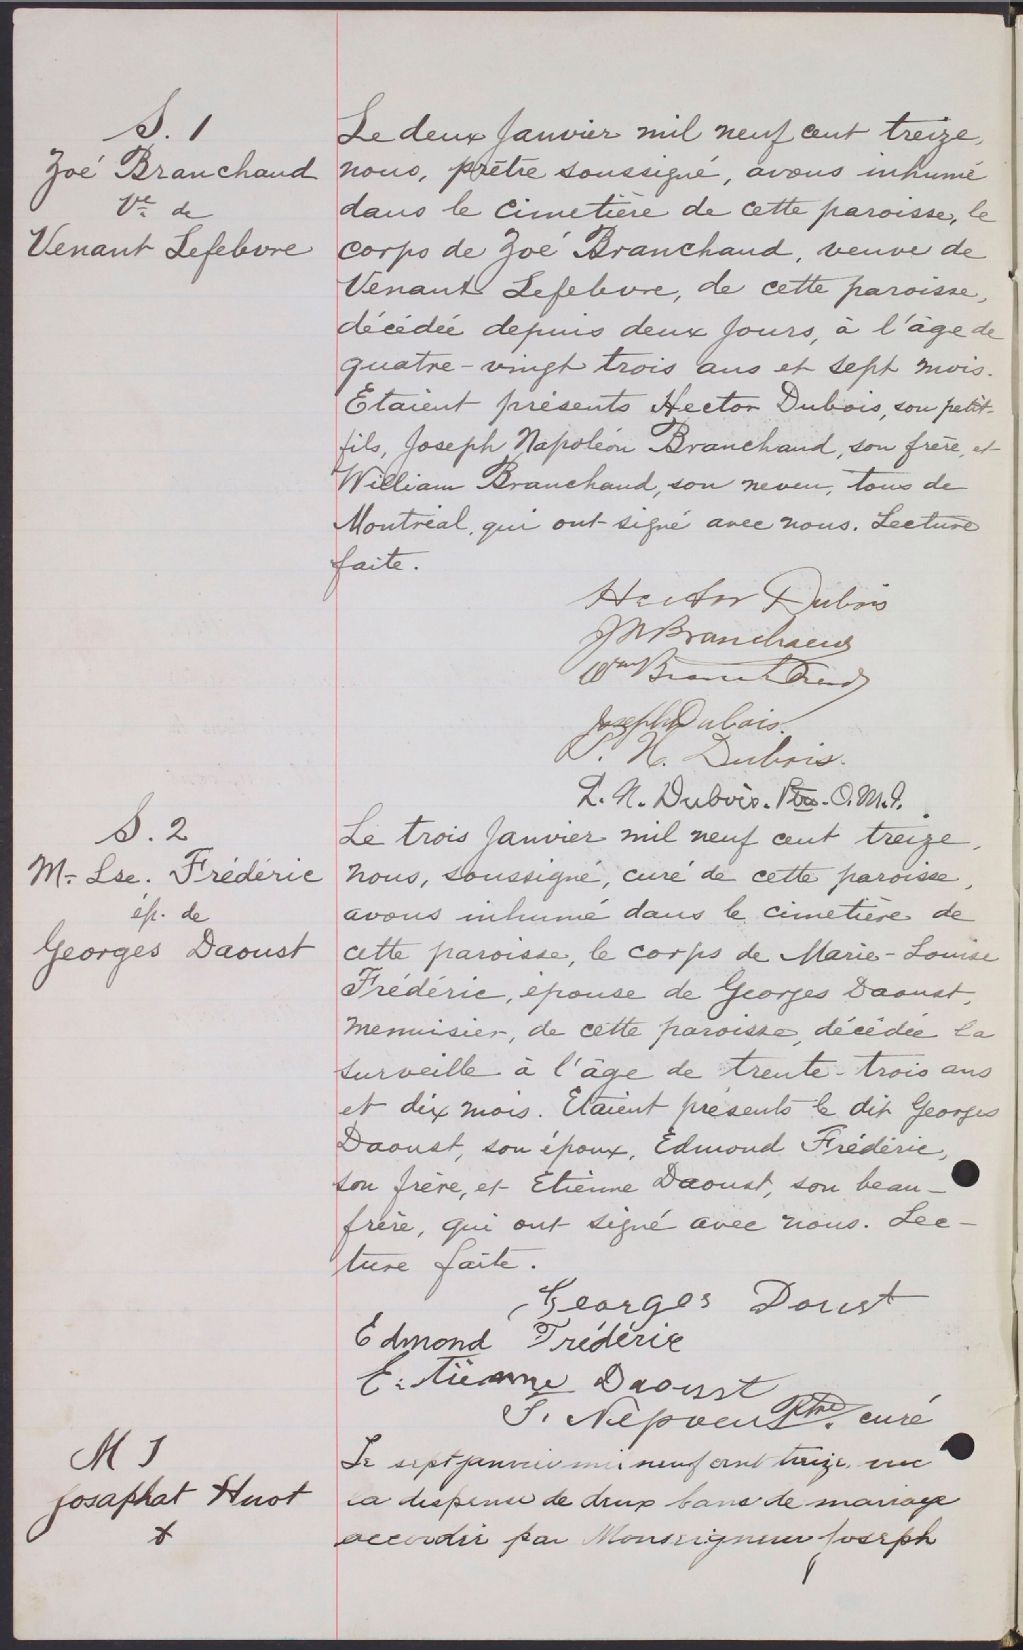 S. 1
Zoé Branchaud
Ve de
Venant Lefebvre
Le deux Janvier mil neuf cent treize,
nous, prêtre soussigné, avons inhumé
dans le cimetière de cette paroisse, le
corps de Zoé Branchaud, veuve de
Venant Lefebvre, de cette paroisse,
décédée depuis deux jours, à l'âge de
quatre-vingt trois ans et sept mois.
Etaient présents Hector Dubois, son petit-
fils, Joseph Napoléon Branchaud, son frère, et
William Branchaud, son neveu, tous de
Montréal, qui ont signé avec nous. Lecture
faite.
Hector Dubois
J N Branchaud
Wm Branchaud
Joseph Dubois.
N. Dubois.
L. N. Dubois. Ptre. O.M.I.
S. 2
M. Lse. Frédéric
ép. de
Georges Daoust
Le trois Janvier mil neuf cent treize,
nous, soussigné, curé de cette paroisse,
avons inhumé dans le cimetière de
cette paroisse, le corps de Marie-Louise
Frédéric, épouse de Georges Daoust,
menuisier, de cette paroisse, décédée la
surveille à l'âge de trente-trois ans
et dix mois. Etaient présents le dit Georges
Daoust, son époux, Edmond Frédéric,
son frère, et Etienne Daoust, son beau-
frère, qui ont signé avec nous. Lec-
ture faite.
Georges Doust
Edmond Frédéric
Etienne Daoust
F. Nepveu Ptre. curé
M 1
Josaphat Huot
&
Le sept janvier mil neuf cent treize, vu
la dispense de deux bans de mariage
accordée par Monseigneur Joseph